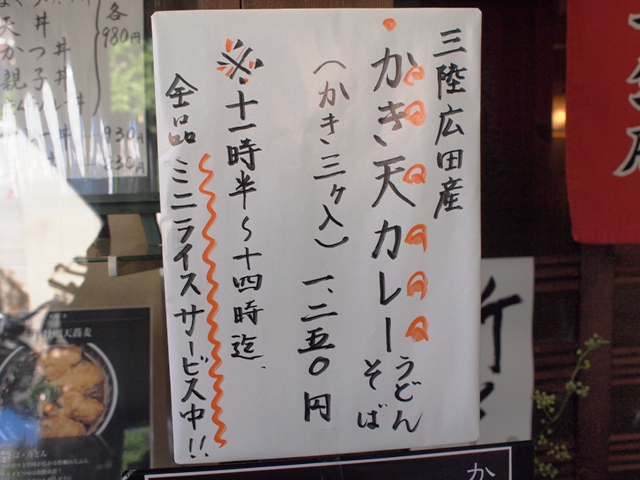 三陸広田産
かき天カレーうどん
そば
(かき三ヶ入) 一、二五〇円
※十一時半〜十四時迄、
全品ミニライスサービス中!!
各
980円
天丼
かつ丼
親子丼
930円
か